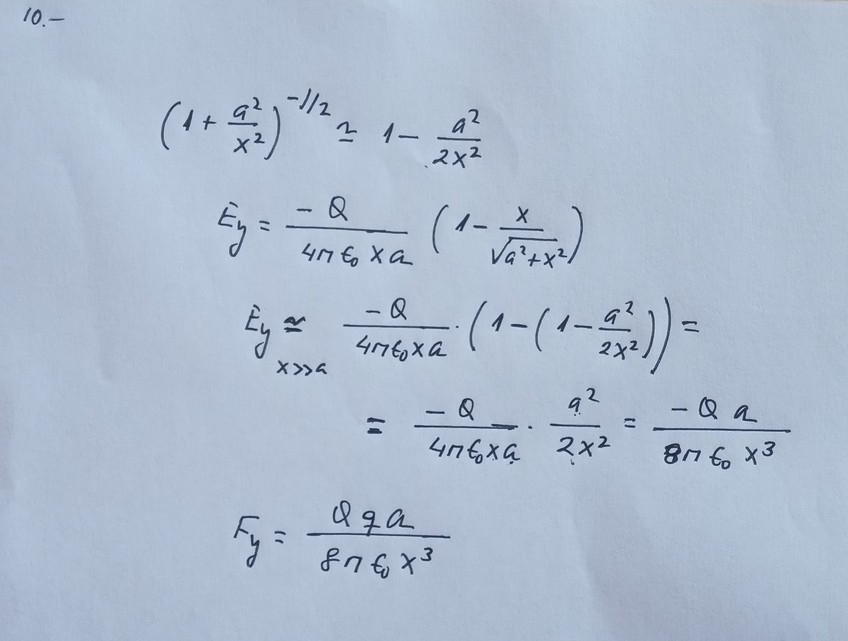 10.-
(1 + a²/x²)^(-1/2) ≃ 1 - a²/2x²
Ey = -Q/4πϵ₀xa (1 - x/√(a²+x²))
Ey ≃ -Q/4πϵ₀xa · (1 - (1 - a²/2x²)) =
x>>a
= -Q/4πϵ₀xa · a²/2x² = -Qa/8πϵ₀x³
Fy = Qqa/8πϵ₀x³